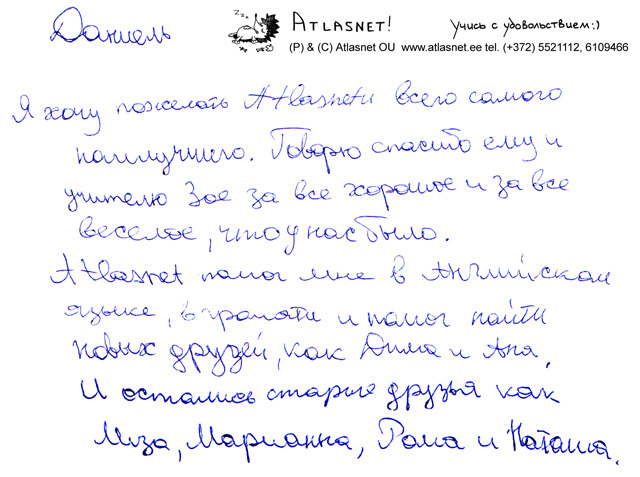 Даниель
Zzz
ATLASNET!
Учись с удовольствием:)
(P) & (C) Atlasnet OU www.atlasnet.ee tel. (+372) 5521112, 6109466
Я хочу пожелать Atlasnetи всего самого
наилучшего. Говорю спасибо ему и
учителю Зое за все хорошое и за все
веселое, что у нас было.
Atlasnet помог мне в Английском
языке, в грамоти и помог найти
новых друзей, как Дима и Аня.
И остались старые друзья как
Лиза, Марианна, Рома и Наташа.